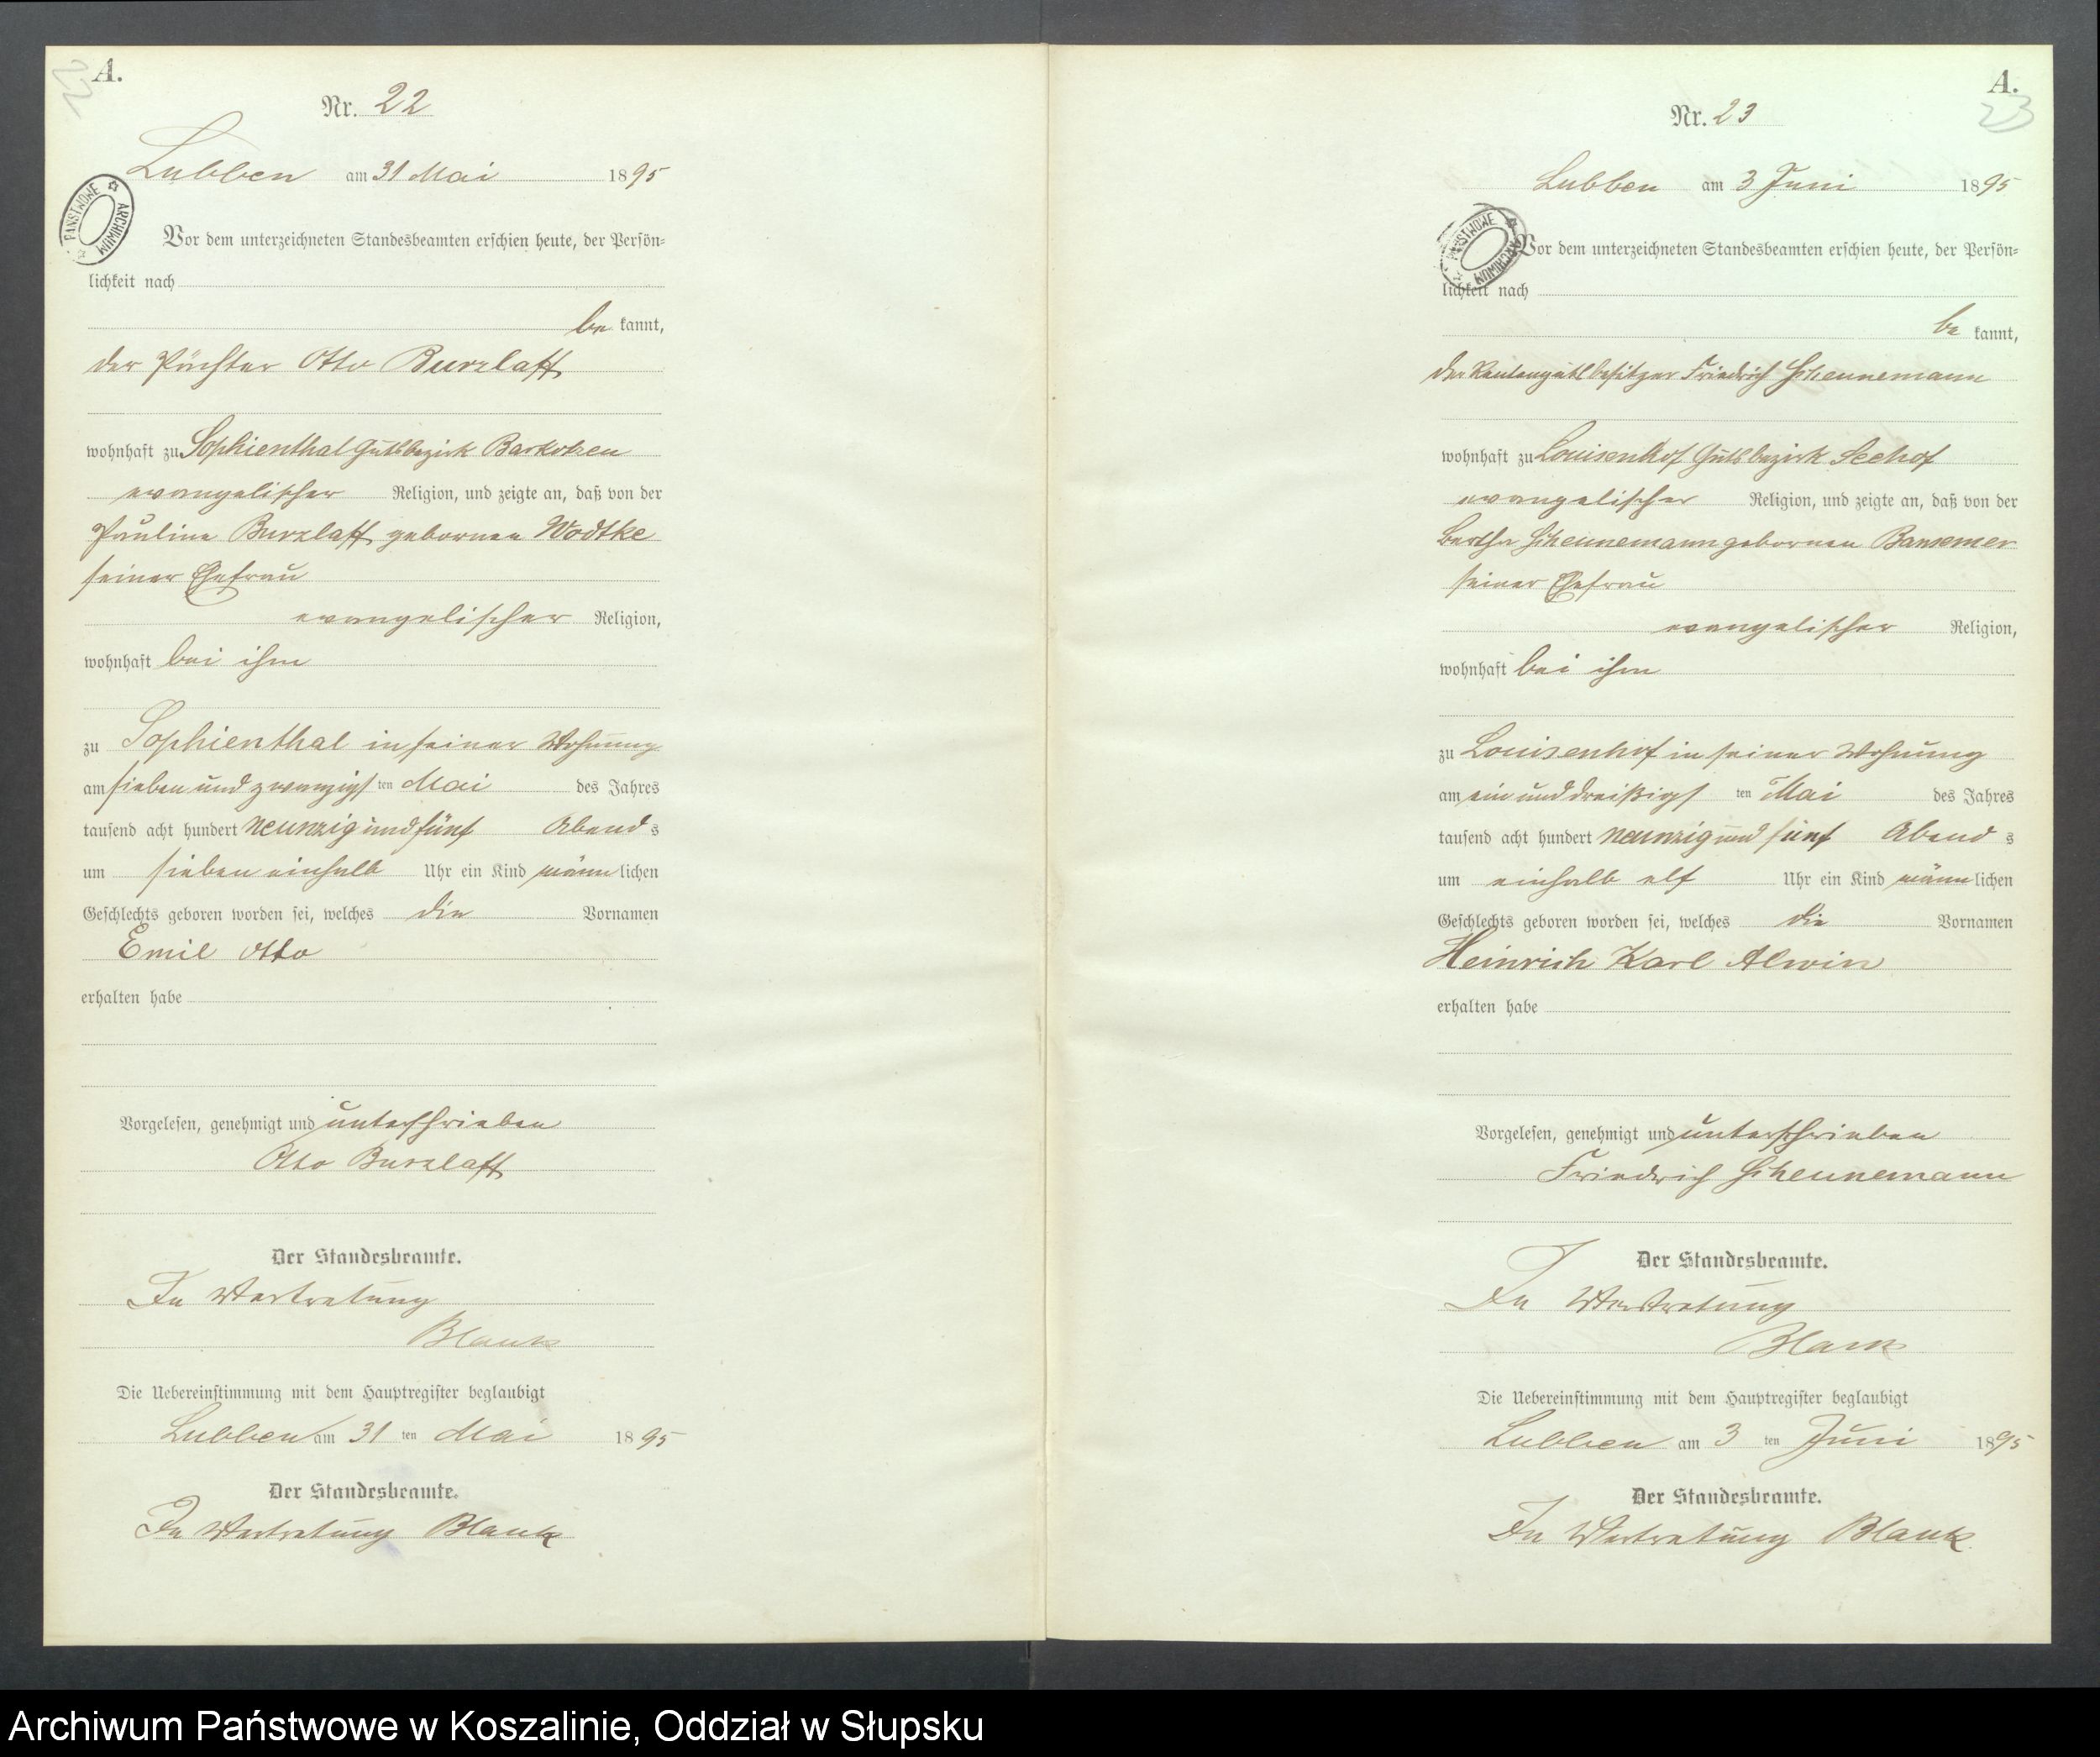 A.
22
Nr. 22
Lubben am 31 Mai 1895
PAŃSTWOWE ARCHIWUM
Vor dem unterzeichneten Standesbeamten erschien heute, der Persön-
lichkeit nach
be kannt,
der Pächter Otto Burzlaff
wohnhaft zu Sophienthal Gutsbezirk Barkotzen
evangelischer Religion, und zeigte an, daß von der
Pauline Burzlaff gebornen Wodtke
seiner Ehefrau
evangelischer Religion,
wohnhaft bei ihm
zu Sophienthal in seiner Wohnung
am sieben und zwanzigs ten Mai des Jahres
tausend acht hundert neunzig und fünf Abend s
um sieben einhalb Uhr ein Kind männ lichen
Geschlechts geboren worden sei, welches die Vornamen
Emil Otto
erhalten habe
Vorgelesen, genehmigt und unterschrieben
Otto Burzlaff
Der Standesbeamte.
In Vertretung
Blank
Die Uebereinstimmung mit dem Hauptregister beglaubigt
Lubben am 31 ten Mai 1895
Der Standesbeamte.
In Vertretung Blank
A.
23
Nr. 23
Lubben am 3 Juni 1895
PAŃSTWOWE ARCHIWUM
Vor dem unterzeichneten Standesbeamten erschien heute, der Persön-
lichkeit nach
be kannt,
der Rentengutsbesitzer Friedrich Scheunemann
wohnhaft zu Louisenhof Gutsbezirk Seehof
evangelischer Religion, und zeigte an, daß von der
Bertha Scheunemann gebornen Bansemer
seiner Ehefrau
evangelischer Religion,
wohnhaft bei ihm
zu Louisenhof in seiner Wohnung
am ein und dreißigs ten Mai des Jahres
tausend acht hundert neunzig und fünf Abend s
um einhalb elf Uhr ein Kind männ lichen
Geschlechts geboren worden sei, welches die Vornamen
Heinrich Karl Alwin
erhalten habe
Vorgelesen, genehmigt und unterschrieben
Friedrich Scheunemann
Der Standesbeamte.
In Vertretung
Blank
Die Uebereinstimmung mit dem Hauptregister beglaubigt
Lubben am 3 ten Juni 1895
Der Standesbeamte.
In Vertretung Blank
Archiwum Państwowe w Koszalinie, Oddział w Słupsku